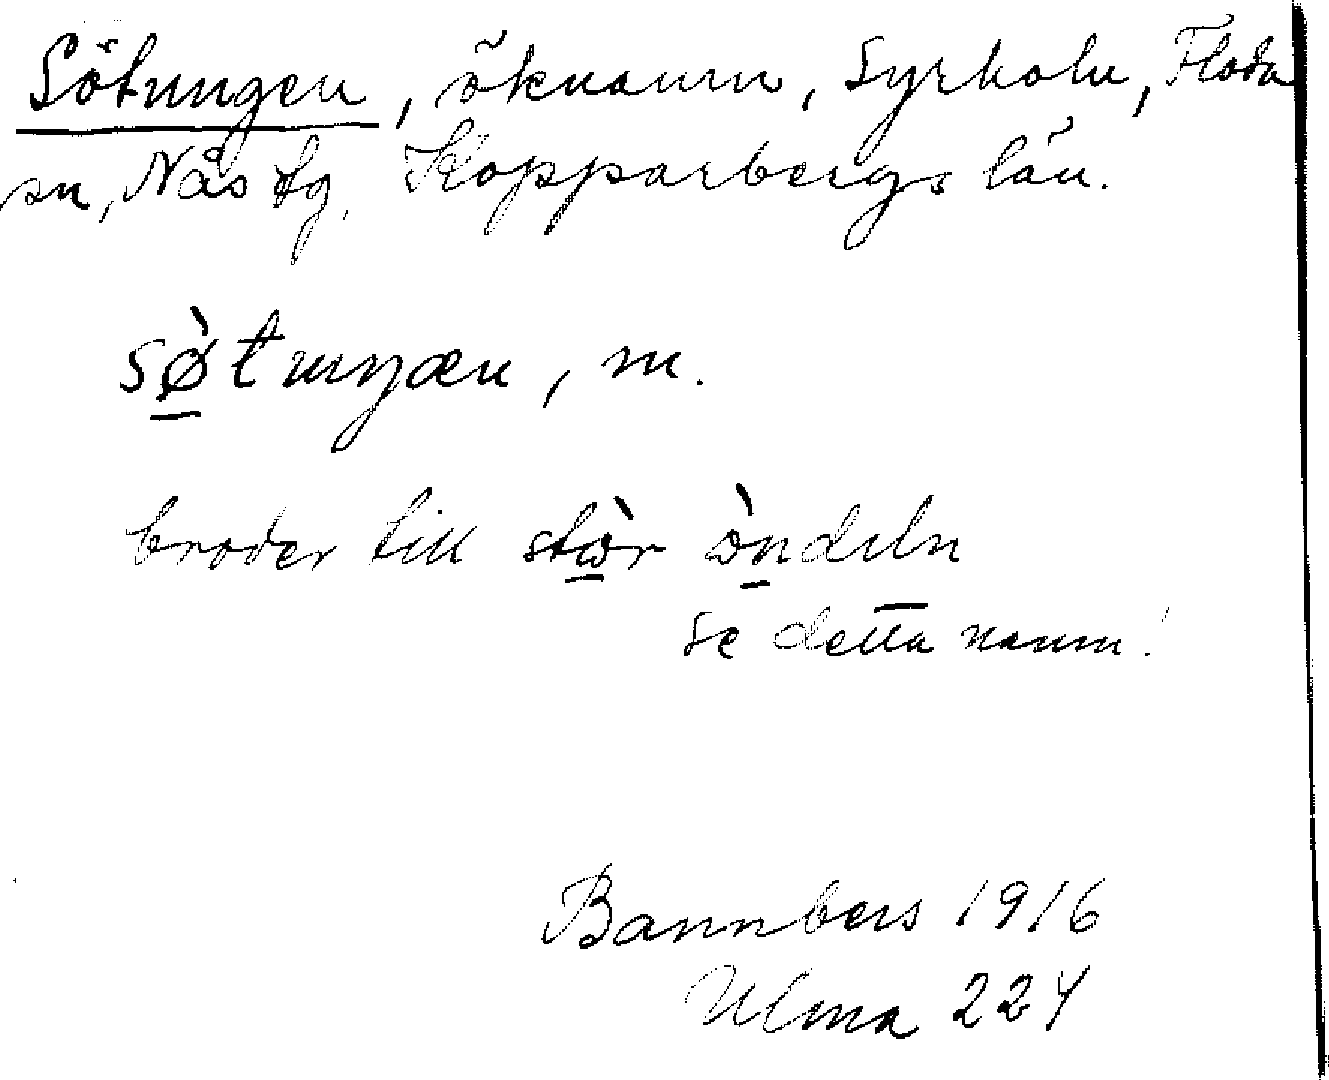 Sötungen, öknamn, Syrholn, Floda
sn, Nås tg, Kopparbergs län.
sø̱̀tuŋæn, m.
broder till stὼ̱r òṉdeln
se detta namn!
Bannbers 1916
Ulma 224